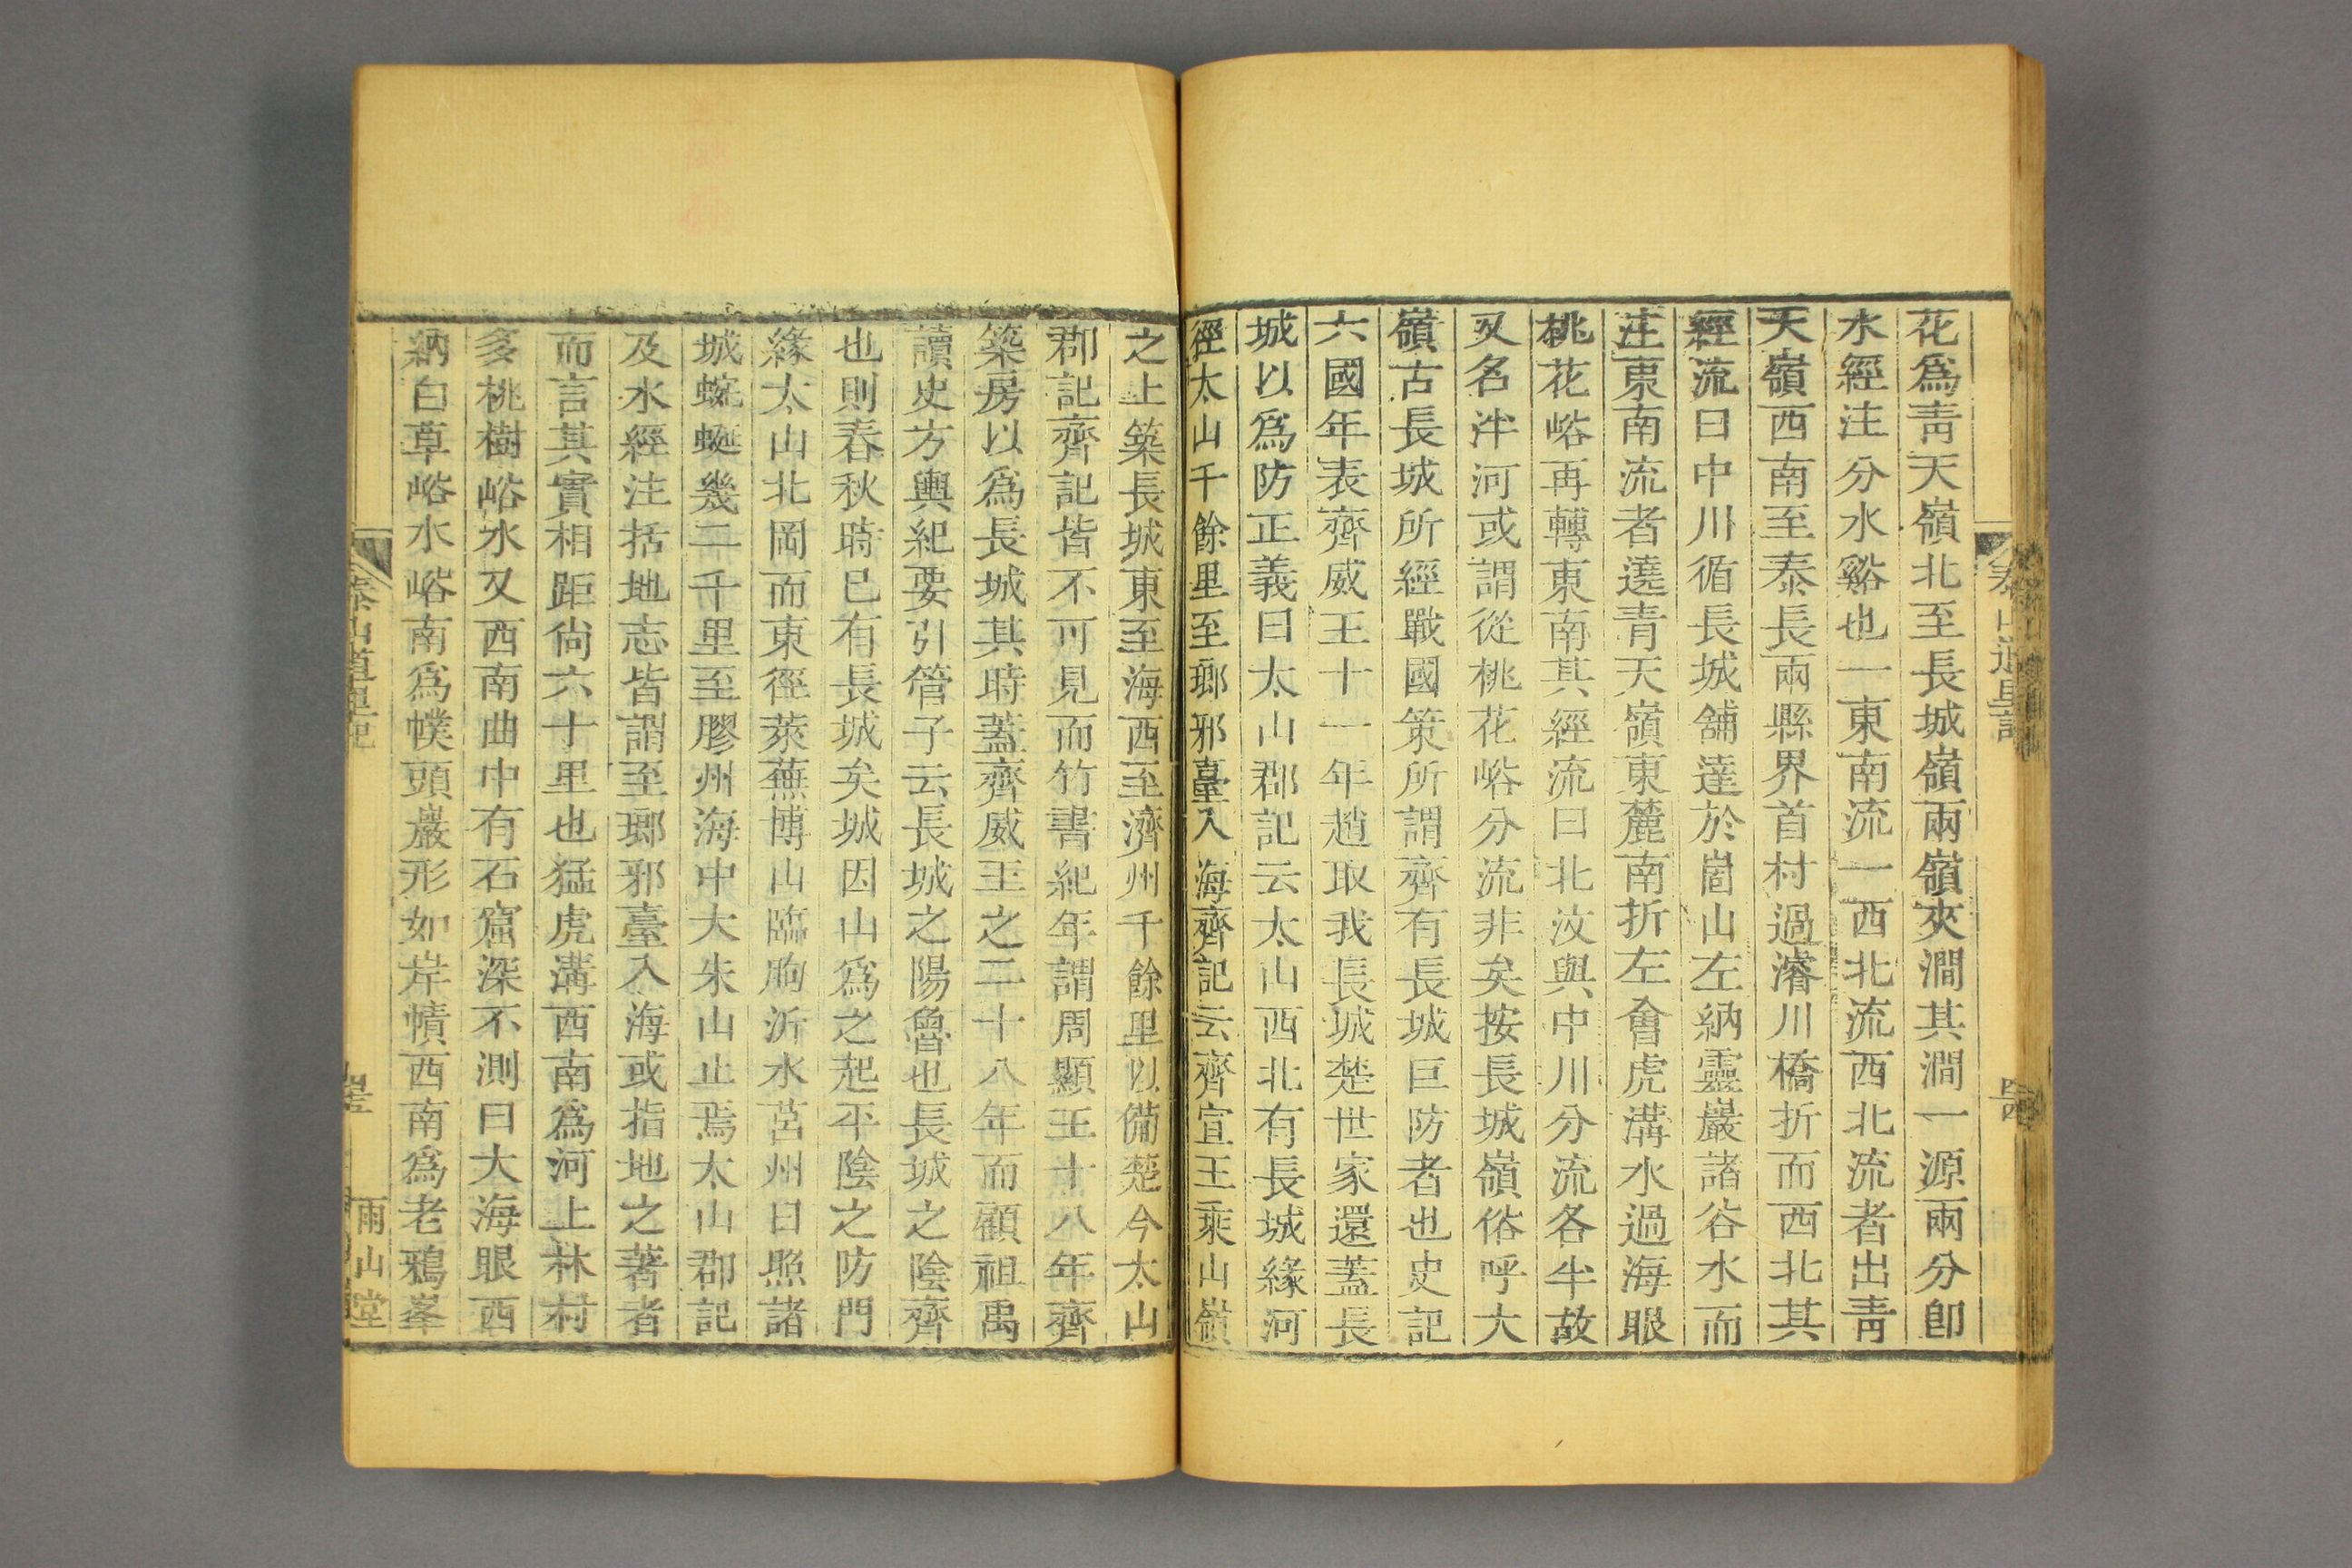 花爲靑天嶺北至長城嶺兩嶺夾澗其澗一源兩分卽
水經注分水谿也一東南流一西北流西北流者出靑
天嶺西南至泰長兩縣界首村過濬川橋折而西北其
經流曰中川循長城舖達於崮山左納靈巖諸谷水而
注東南流者遶青天嶺東麓南折左會虎溝水過海眼
桃花峪再轉東南其經流曰北汶與中川分流各半故
又名泮河或謂從桃花峪分流非矣按長城嶺俗呼大
嶺古長城所經戰國策所謂齊有長城巨防者也史記
六國年表齊威王十一年趙取我長城楚世家還蓋長
城以爲防正義曰太山郡記云太山西北有長城緣河
徑太山千餘里至瑯邪臺入海齊記云齊宣王乘山嶺
之上築長城東至海西至濟州千餘里以備楚今太山
郡記齊記皆不可見而竹書紀年謂周顯王十八年齊
築房以爲長城其時蓋齊威王之二十八年而顧祖禹
讀史方輿紀要引管子云長城之陽魯也長城之陰齊
也則春秋時已有長城矣城因山爲之起平陰之防門
緣太山北岡而東徑萊蕪博山臨朐沂水莒州日照諸
城蜿蜒幾二千里至膠州海中大朱山止焉太山郡記
及水經注括地志皆謂至瑯邪臺入海或指地之著者
而言其實相距尙六十里也猛虎溝西南爲河上林村
多桃樹峪水又西南曲中有石窟深不測曰大海眼西
納白草峪水峪南爲幞頭巖形如岸幘西南爲老鴉峯
泰山道里記
雨山堂